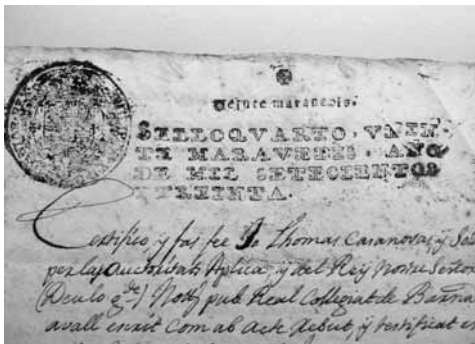 Veinte maravedis.
SELLO QVARTO, VEIN-
TE MARAVEDIS, AÑO
DE MIL SETECIENTOS
Y TREINTA.
Certifico y fas fee Jo Thomas Casanovas, y
per las Auctoritats Aplica, y del Rey Nostre Senor
(Deu lo g.de) Not.
 pub. Real Collegiat de Barna
avall escrit Com ab Acte debut, y testificat